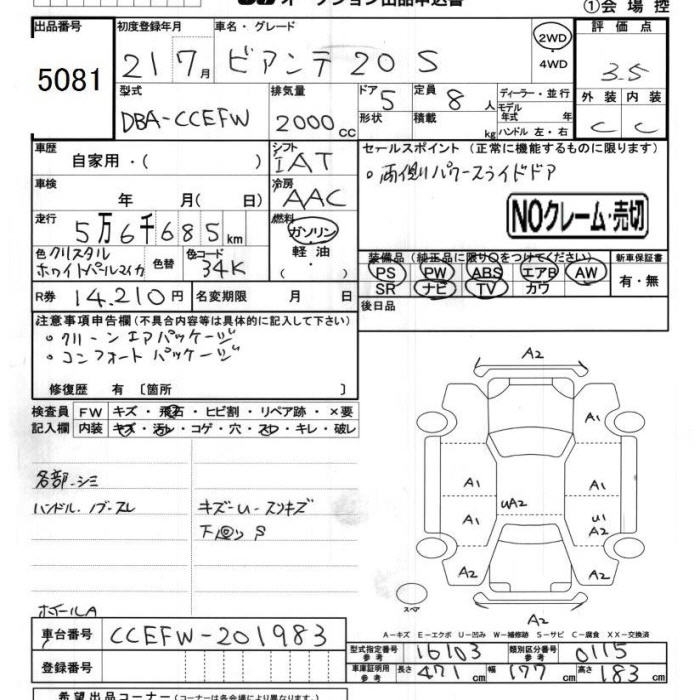 オークション出品申込書
①会場控
出品番号 初度登録年月 車名・グレード 評価点
5081 21 7月 ビアンテ 20 S 2WD ・ 4WD 3.5
型式 排気量 ドア 5 定員 8人 ディーラー・並行 外装 内装
DBA-CCEFW 2000cc 形状 積載 kg モデル年式 年 ハンドル 左・右 C C
車歴 自家用・( ) シフト IAT セールスポイント(正常に機能するものに限ります)
車検 年 月( 日) 冷房 AAC ・両側パワースライドドア
走行 5万6千685km 燃料 ガソリン・軽油・ NOクレーム・売切
色 クリスタルホワイトパールマイカ 色替 色コード 34K
装備品(純正品に限り○をつけてください) 新車保証書
PS PW ABS エアB AW 有・無
SR ナビ TV カワ
R券 14,210円 名変期限 月 日 後日品
注意事項申告欄(不具合内容等は具体的に記入して下さい)
・クリーンエアパッケージ
・コンフォートパッケージ
修復歴 有〔箇所 〕
検査員 FW キズ・飛石・ヒビ割・リペア跡・×要
記入欄 内装 キズ・汚レ・コゲ・穴・スレ・キレ・破レ
各部-シミ
ハンドル・ノブ-スレ キズ-U-スリキズ
ホイールA
A2
A1
A1 A1
UA2
A1 U1 A2
A2 A2
スペア
A2
A-キズ E-エクボ U-凹み W-補修跡 S-サビ C-腐食 XX-交換済
車台番号 CCEFW-201983
型式指定番号 参考 16103 類別区分番号 参考 0115
登録番号 車庫証明用 参考 長さ 471cm 幅 177cm 高さ 183cm
希望出品コーナー(コーナーは各会場により異なります。)